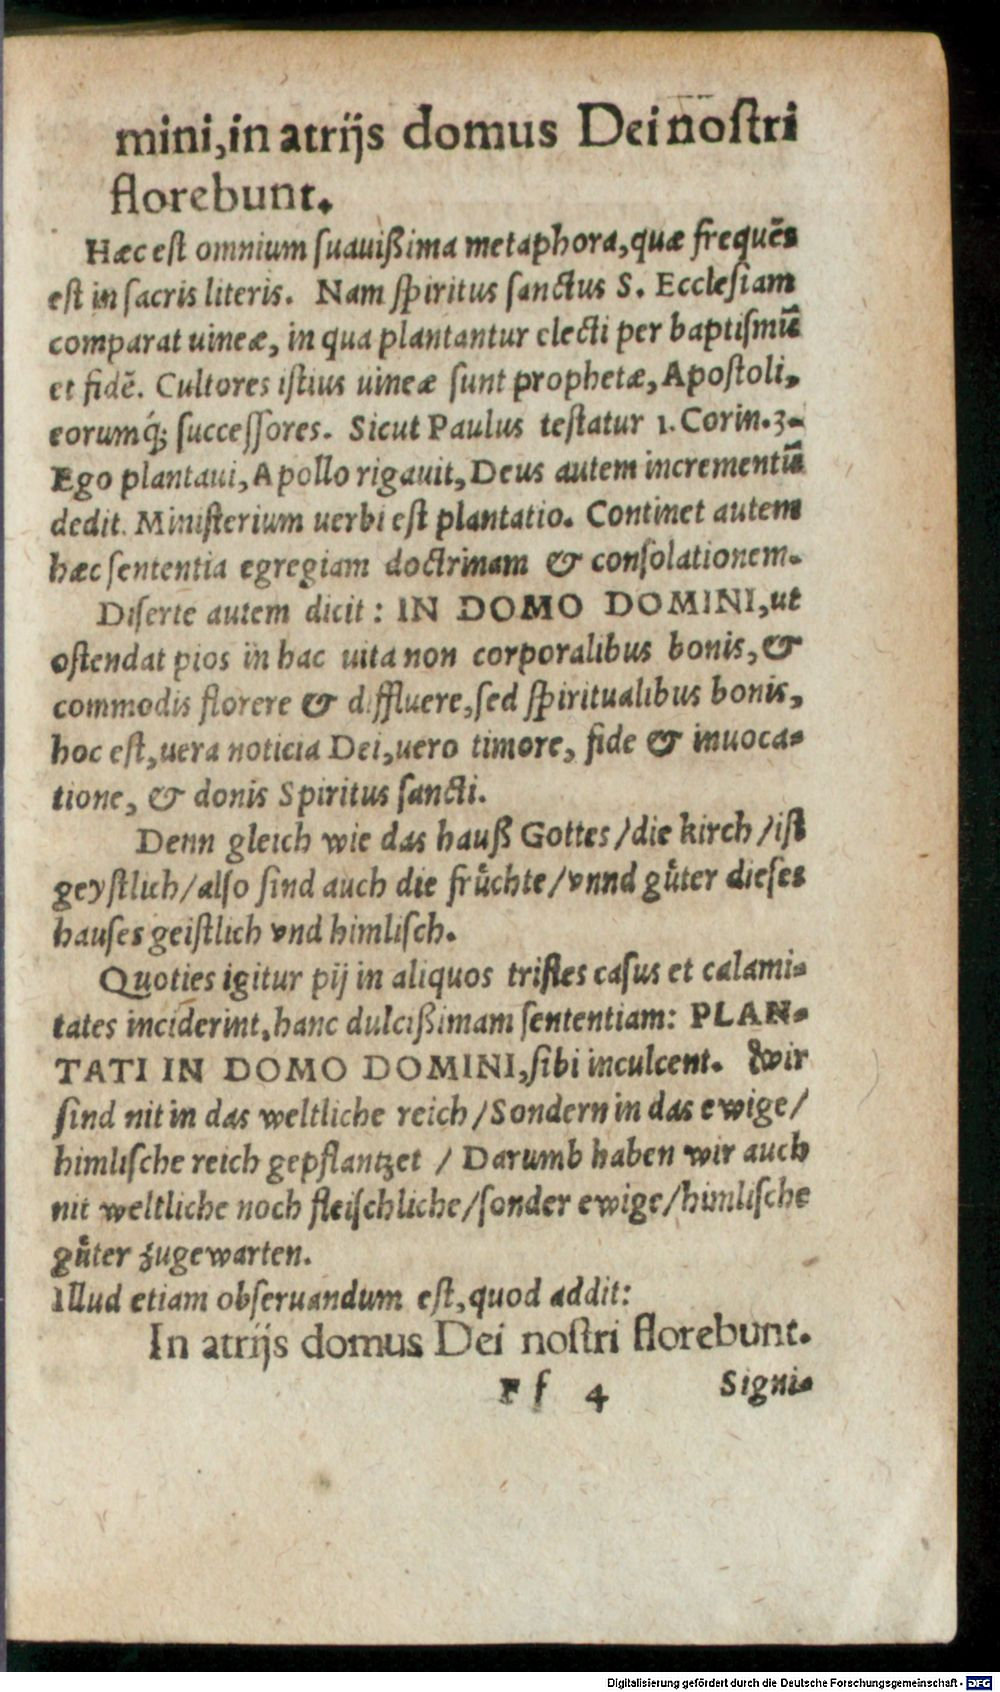 mini, in atrijs domus Dei noſtri
florebunt.
Hæc eſt omnium ſuauißima metaphora, quæ frequẽs
eſt in ſacris literis. Nam ſpiritus ſanctus S. Eccleſiam
comparat uineæ, in qua plantantur electi per baptiſmũ
et fidẽ. Cultores iſtius uineæ ſunt prophetæ, Apoſtoli,
eorumq́; ſucceſſores. Sicut Paulus teſtatur 1. Corin. 3.
Ego plantaui, Apollo rigauit, Deus autem incrementũ
dedit. Miniſterium uerbi eſt plantatio. Continet autem
hæc ſententia egregiam doctrinam & conſolationem.
Diſerte autem dicit: IN DOMO DOMINI, ut
oſtendat pios in hac uita non corporalibus bonis, &
commodis florere & diffluere, ſed ſpiritualibus bonis,
hoc eſt, uera noticia Dei, uero timore, fide & inuoca-
tione, & donis Spiritus ſancti.
Denn gleich wie das hauß Gottes / die kirch / iſt
geyſtlich / alſo ſind auch die fruͤchte / vnnd guͤter dieſes
hauſes geiſtlich vnd himliſch.
Quoties igitur pij in aliquos triſtes caſus et calami-
tates inciderint, hanc dulcißimam ſententiam: PLAN-
TATI IN DOMO DOMINI, ſibi inculcent. Wir
ſind nit in das weltliche reich / Sondern in das ewige /
himliſche reich gepflantzet / Darumb haben wir auch
nit weltliche noch fleiſchliche / ſonder ewige / himliſche
guͤter zugewarten.
Illud etiam obſeruandum eſt, quod addit:
In atrijs domus Dei noſtri florebunt.
Ff 4 Signi-
Digitalisierung gefördert durch die Deutsche Forschungsgemeinschaft - DFG